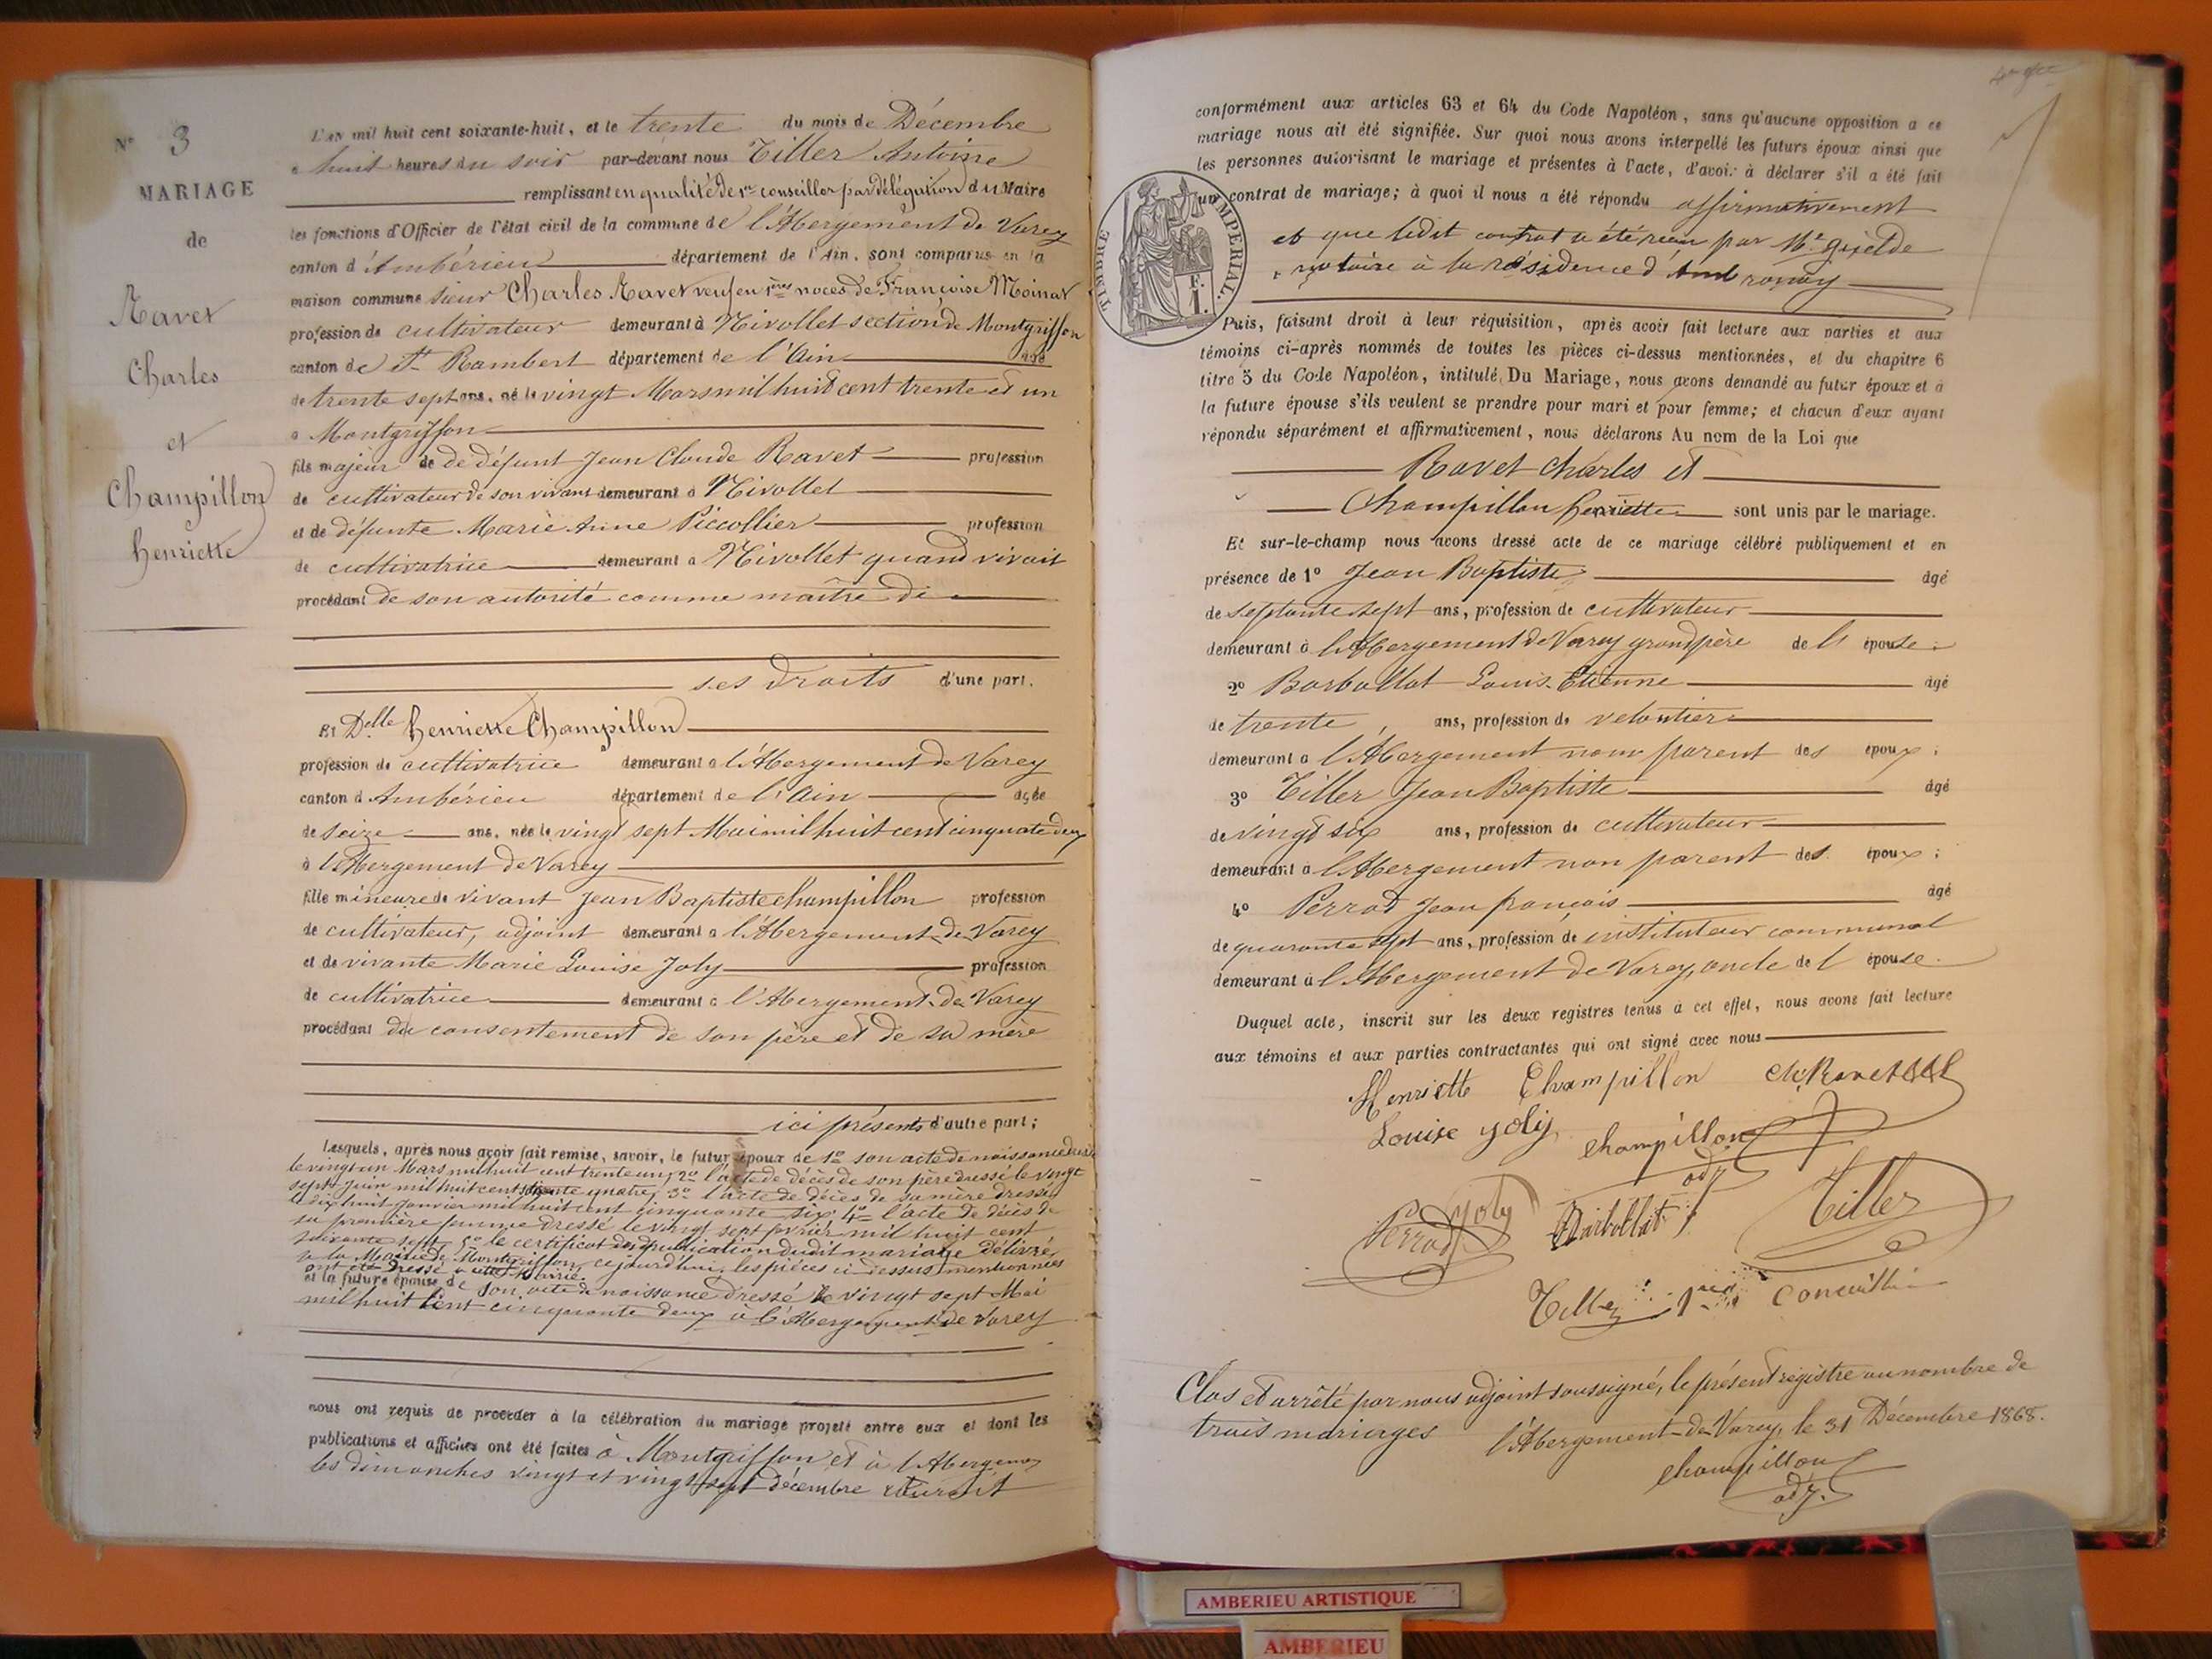 N° 3
MARIAGE
de
Ravet
Charles
et
Champillon
henriette
L'an mil huit cent soixante-huit, et le trente du mois de Décembre
a huit heures du soir par-devant nous Tiller Antoine
remplissant en qualité de 1er conseiller par délégation du Maire
les fonctions d'Officier de l'état civil de la commune de l'Abergement de Varey
canton d'Ambérieu département de l'Ain, sont comparus en la
maison commune sieur Charles Ravet veuf en 1ères noces de Françoise Moinat
profession de cultivateur demeurant à Nivollet section de Montgriffon
canton de St Rambert département de l'Ain âgé
de trente sept ans, né le vingt Mars mil huit cent trente et un
a Montgriffon
fils majeur de de défunt Jean Claude Ravet profession
de cultivateur de son vivant demeurant à Nivollet
et de défunte Marie Anne Piccollier profession
de cultivatrice demeurant a Nivollet quand vivait
procédant de son autorité comme maître de
ses droits d'une part.
Et Delle henriette Champillon
profession de cultivatrice demeurant a l'Abergement de Varey
canton d'Ambérieu département de l'Ain agée
de seize ans, née le vingt sept Mai mil huit cent cinquate deux
à l'Abergement de Varey
fille mineure de vivant Jean Baptiste Champillon profession
de cultivateur, adjoint demeurant a l'Abergement de Varey
et de vivante Marie Louise Joly profession
de cultivatrice demeurant à l'Abergement de Varey
procédant du consentement de son père et de sa mère
ici présents d'autre part;
Lesquels, après nous avoir fait remise, savoir, le futur époux de 1° son acte de naissance
le vingt un Mars mil huit cent trente un, 2° l'acte de décès de son père dressé le vingt
sept Juin mil huit cent quatre, 3° l'acte de décès de sa mère dressé
le dix huit Janvier mil huit cent cinquante six 4° l'acte de décès de
sa première femme dressé le vingt sept février mil huit cent
soixante sept 5° le certificat de publication dudit mariage délivré
à la Mairie de Montgriffon, cejourd'hui, les pièces ci-dessus mentionnées
ont été dressé à cette Mairie
et la future épouse de son acte de naissance dressé le vingt sept Mai
mil huit cent cinquante deux à l'Abergement de Varey
nous ont requis de procéder à la célébration du mariage projeté entre eux et dont les
publications et affiches ont été faites à Montgriffon et à l'Abergement
les dimanches vingt et vingt sept décembre courant
conformément aux articles 63 et 64 du Code Napoléon, sans qu'aucune opposition a ce
mariage nous ait été signifiée. Sur quoi nous avons interpellé les futurs époux ainsi que
les personnes autorisant le mariage et présentes à l'acte, d'avoir à déclarer s'il a été fait
un contrat de mariage; à quoi il nous a été répondu affirmativement
et que ledit contrat a été reçu par Me
notaire à la résidence d'Ambronay
TIMBRE IMPERIAL.
1 F.
Puis, faisant droit à leur réquisition, après avoir fait lecture aux parties et aux
témoins ci-après nommés de toutes les pièces ci-dessus mentionnées, et du chapitre 6
titre 5 du Code Napoléon, intitulé Du Mariage, nous avons demandé au futur époux et à
la future épouse s'ils veulent se prendre pour mari et pour femme; et chacun d'eux ayant
répondu séparément et affirmativement, nous déclarons Au nom de la Loi que
Ravet Charles et
Champillon henriette sont unis par le mariage.
Et sur-le-champ nous avons dressé acte de ce mariage célébré publiquement et en
présence de 1° Jean Baptiste âgé
de septante sept ans, profession de cultivateur
demeurant à l'Abergement de Varey grand père de l' épouse;
2° Barbollat Louis-Etienne âgé
de trente, ans, profession de veloutier
demeurant a l'Abergement non parent des époux;
3° Tiller Jean Baptiste âgé
de vingt six ans, profession de cultivateur
demeurant à l'Abergement non parent des époux;
4° Perrod Jean françois âgé
de quarante sept ans, profession de instituteur communal
demeurant à l'Abergement de Varey, oncle de l' épouse.
Duquel acte, inscrit sur les deux registres tenus à cet effet, nous avons fait lecture
aux témoins et aux parties contractantes qui ont signé avec nous
Henriette Champillon Ch. Ravet
Louise Joly Champillon
adj.
Perrod Joly Barbollat Tiller
Tiller 1er Conseiller
Clos et arrêté par nous adjoint soussigné, le présent registre au nombre de
trois mariages l'Abergement-de-Varey, le 31 Décembre 1868.
Champillon
adj.
AMBERIEU ARTISTIQUE
AMBERIEU